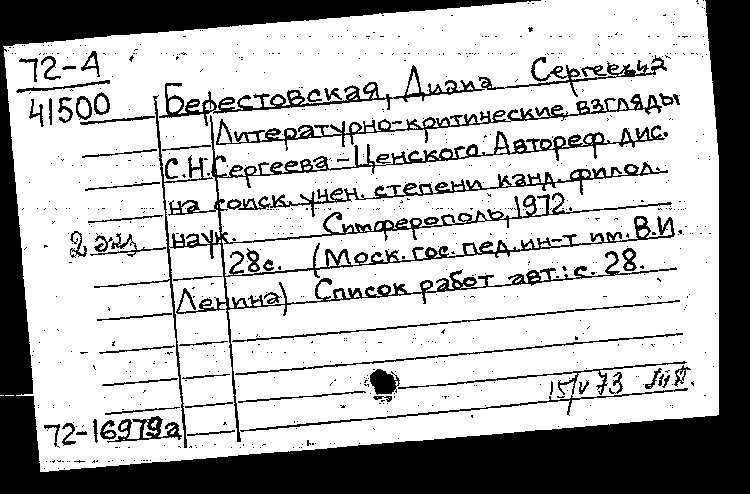 72-А
41500
Берестовская, Диана Сергеевна
Литературно-критические взгляды
С.Н.Сергеева-Ценского. Автореф. дис.
на соиск. учен. степени канд. филол.
наук. Симферополь, 1972.
2 экз.
28с. (Моск. гос. пед. ин-т им. В.И.
Ленина) Список работ авт.: с. 28.
15/V 73
72-16979а